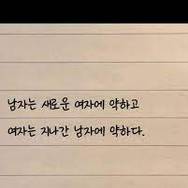 남자는 새로운 여자에 약하고
여자는 지나간 남자에 약하다.